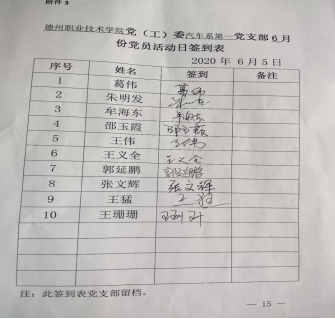 附件3
德州职业技术学院党（工）委汽车系第一党支部6月
份党员活动日签到表
2020 年 6 月 5 日
序号 姓名 签到 备注
1 葛伟 葛伟
2 朱明发
3 牟海东 牟海东
4 邵玉霞 邵玉霞
5 王伟 王伟
6 王义全 王义全
7 郭延鹏 郭延鹏
8 张文辉 张文辉
9 王猛 王猛
10 王珊珊 王珊珊
注：此签到表党支部留档。
— 15 —